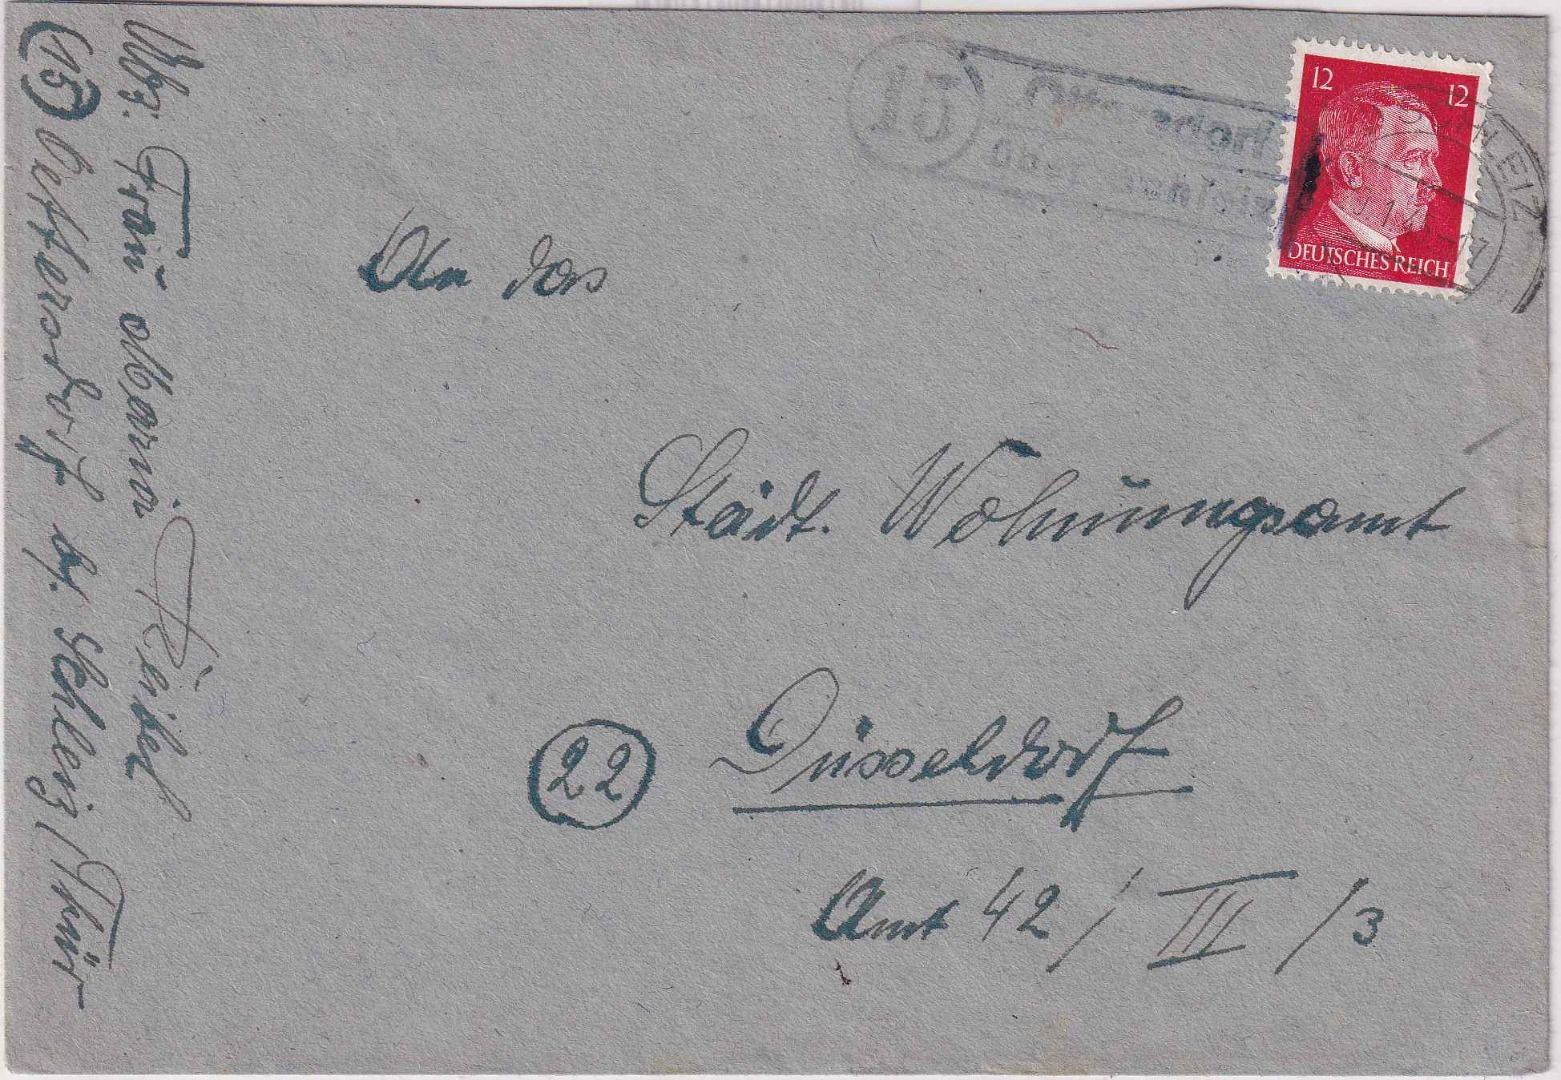 15
über Schleiz
12 12
DEUTSCHES REICH
SCHLEIZ
An das
Städt. Wohnungsamt
22 Düsseldorf
Amt 42 / III / 3
Abs. Frau Maria
(15) Oettersdorf b. Schleiz / Thür